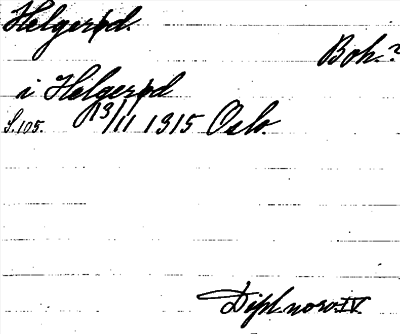 Helgerød.
Boh.?
i Helgerød
S. 105. 13/11 1315 Oslo.
Dipl. norv. IV.